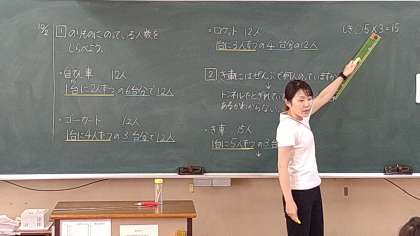 10/2
1 のりものにのっている人数を
しらべよう。
・自てん車 12人
1台に2人ずつの6台分で12人
・ゴーカート 12人
1台に4人ずつの3台分で12人
・ロケット 12人
1台に3人ずつの4台分で12人
2 き車にはぜんぶで何人のっていますか
あるかわからない
・き車 15人
1台に5人ずつの3台
しき 5×3=15